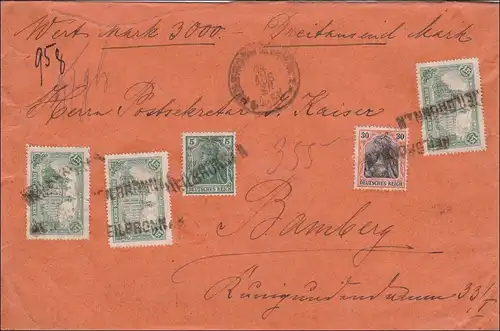 Wert Mark 3000.— Dreitausend Mark
958
Herrn Postsekretär v. Kaiser
355
HEILBRONN
HEILBRONN
HEILBRONN
HEILBRONN
5 5
DEUTSCHES REICH
30 30
DEUTSCHES REICH
Bamberg
Kunigundendamm 33/I